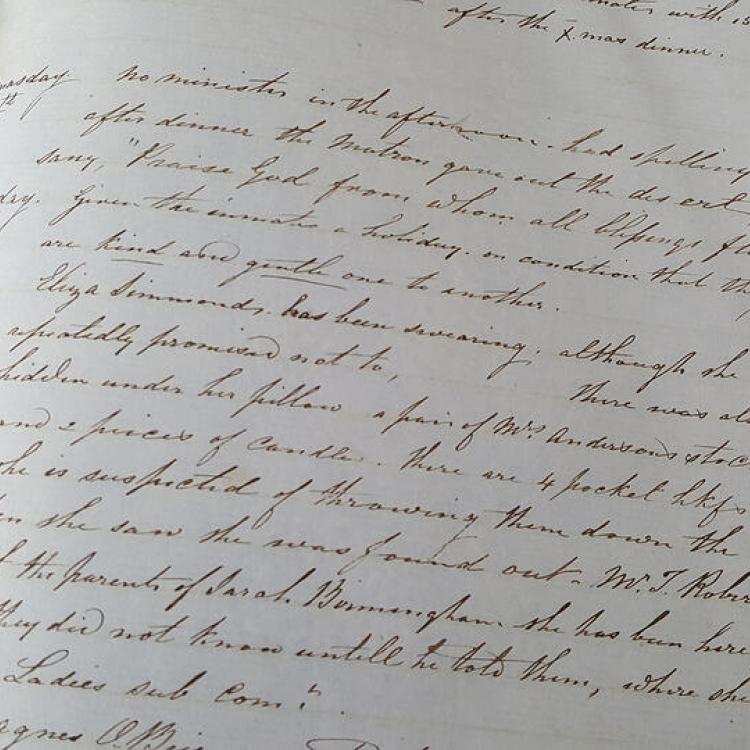 with
after the Xmas dinner.
no minister in the afternoon. had spelling
after dinner the Matron gave out the desert
sang, "Praise God from whom all blessings
day. Given the inmates a holiday. on condition that
are kind and gentle one to another.
Eliza Simmonds. has been swearing, although she
repeatedly promised not to, there was
hidden under her pillow a pair of Mrs Anderson's
and 2 pieces of candle. there are 4 pocket hkfs
she is suspected of throwing them down the
she saw she was found out. Mr. T.
the parents of Sarah Birmingham. she has been here
they did not know untill he told them, where she
Ladies sub Com.
Agnes